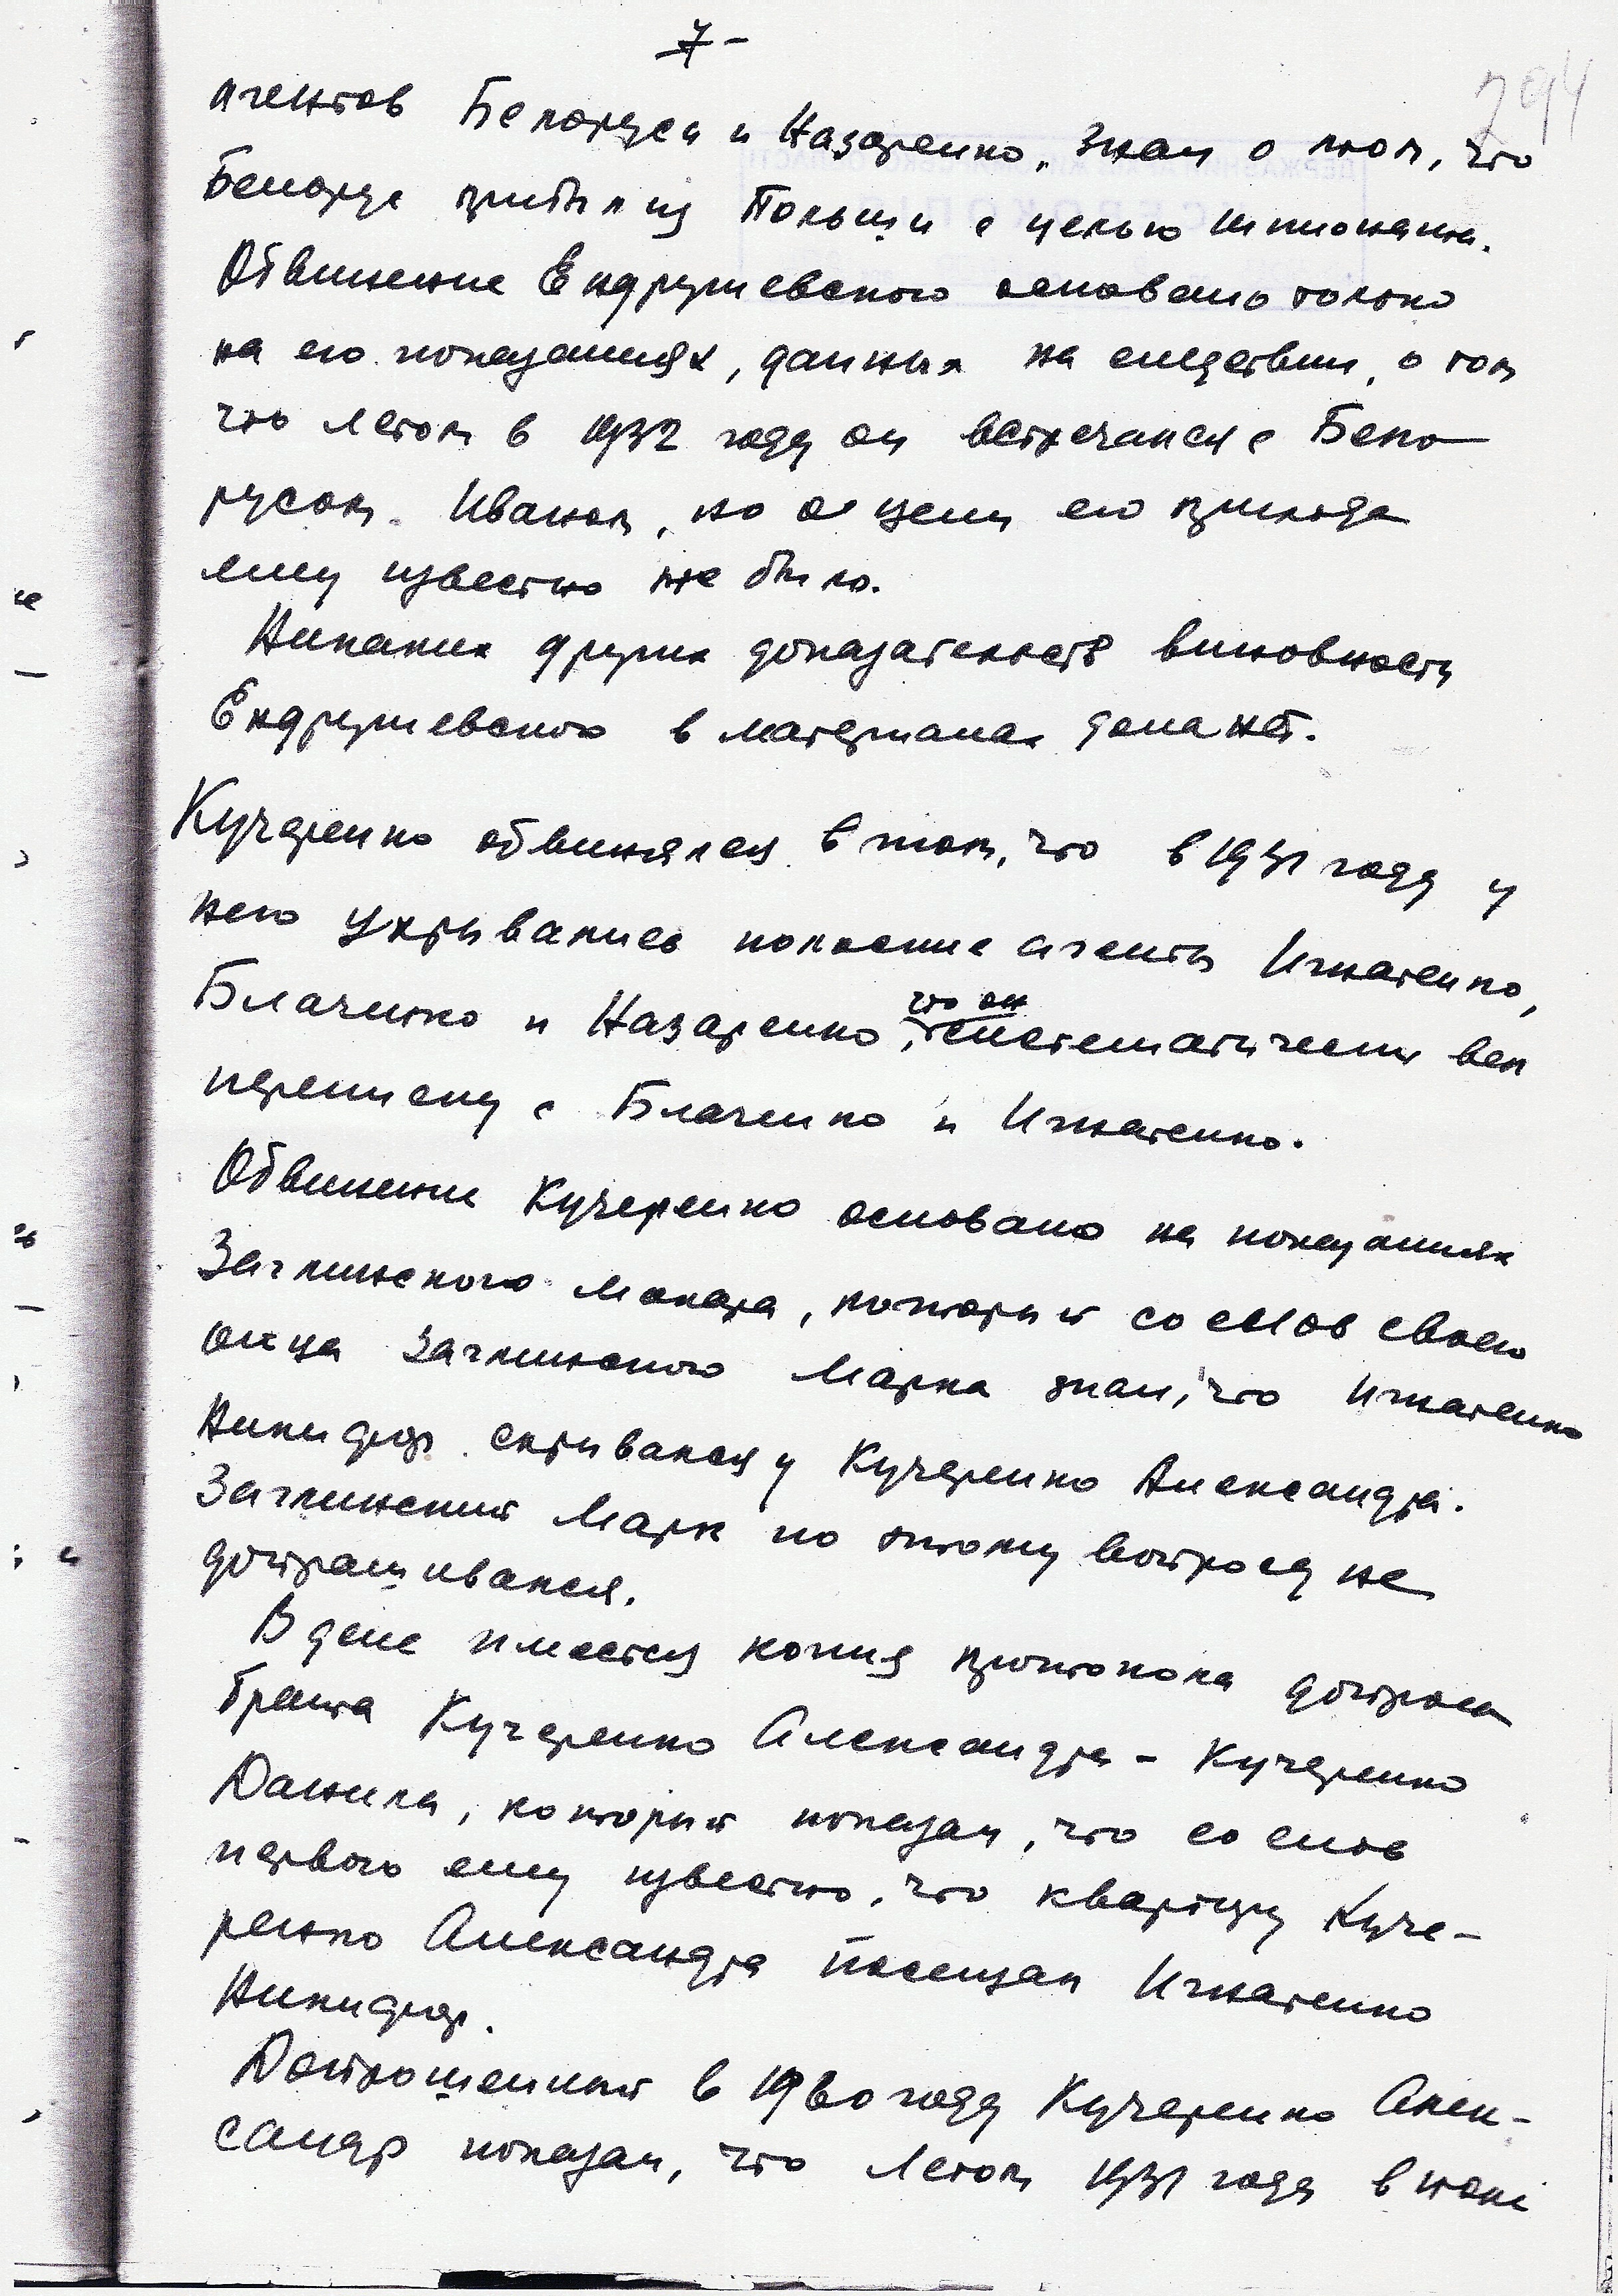 7-
294
агентов Белоруса и Назаренко, знал о том, что
Белорус прибыл из Польши с целью шпионажа.
Обвинение Ендрушевского основано только
на его показаниях, данных на следствии, о том
что летом в 1932 году он встречался с Бело-
русом Иваном, но о цели его прихода
ему известно не было.
Никаких других доказательств виновности
Ендрушевского в материалах дела нет.
Кучеренко обвинялся в том, что в 1931 году у
него укрывались польские агенты Игнатенко,
Блаченко и Назаренко, что он систематически вел
переписку с Блаченко и Игнатенко.
Обвинение Кучеренко основано на показаниях
Заглинского Макара, который со слов своего
отца Заглинского Марка знал, что Игнатенко
Никифор скрывался у Кучеренко Александра.
Заглинский Марк по этому вопросу не
допрашивался.
В деле имеется копия протокола допроса
брата Кучеренко Александра - Кучеренко
Данила, который показал, что со слов
первого ему известно, что квартиру Куче-
ренко Александра посещал Игнатенко
Никифор.
Допрошенный в 1960 году Кучеренко Алек-
сандр показал, что летом 1931 года в